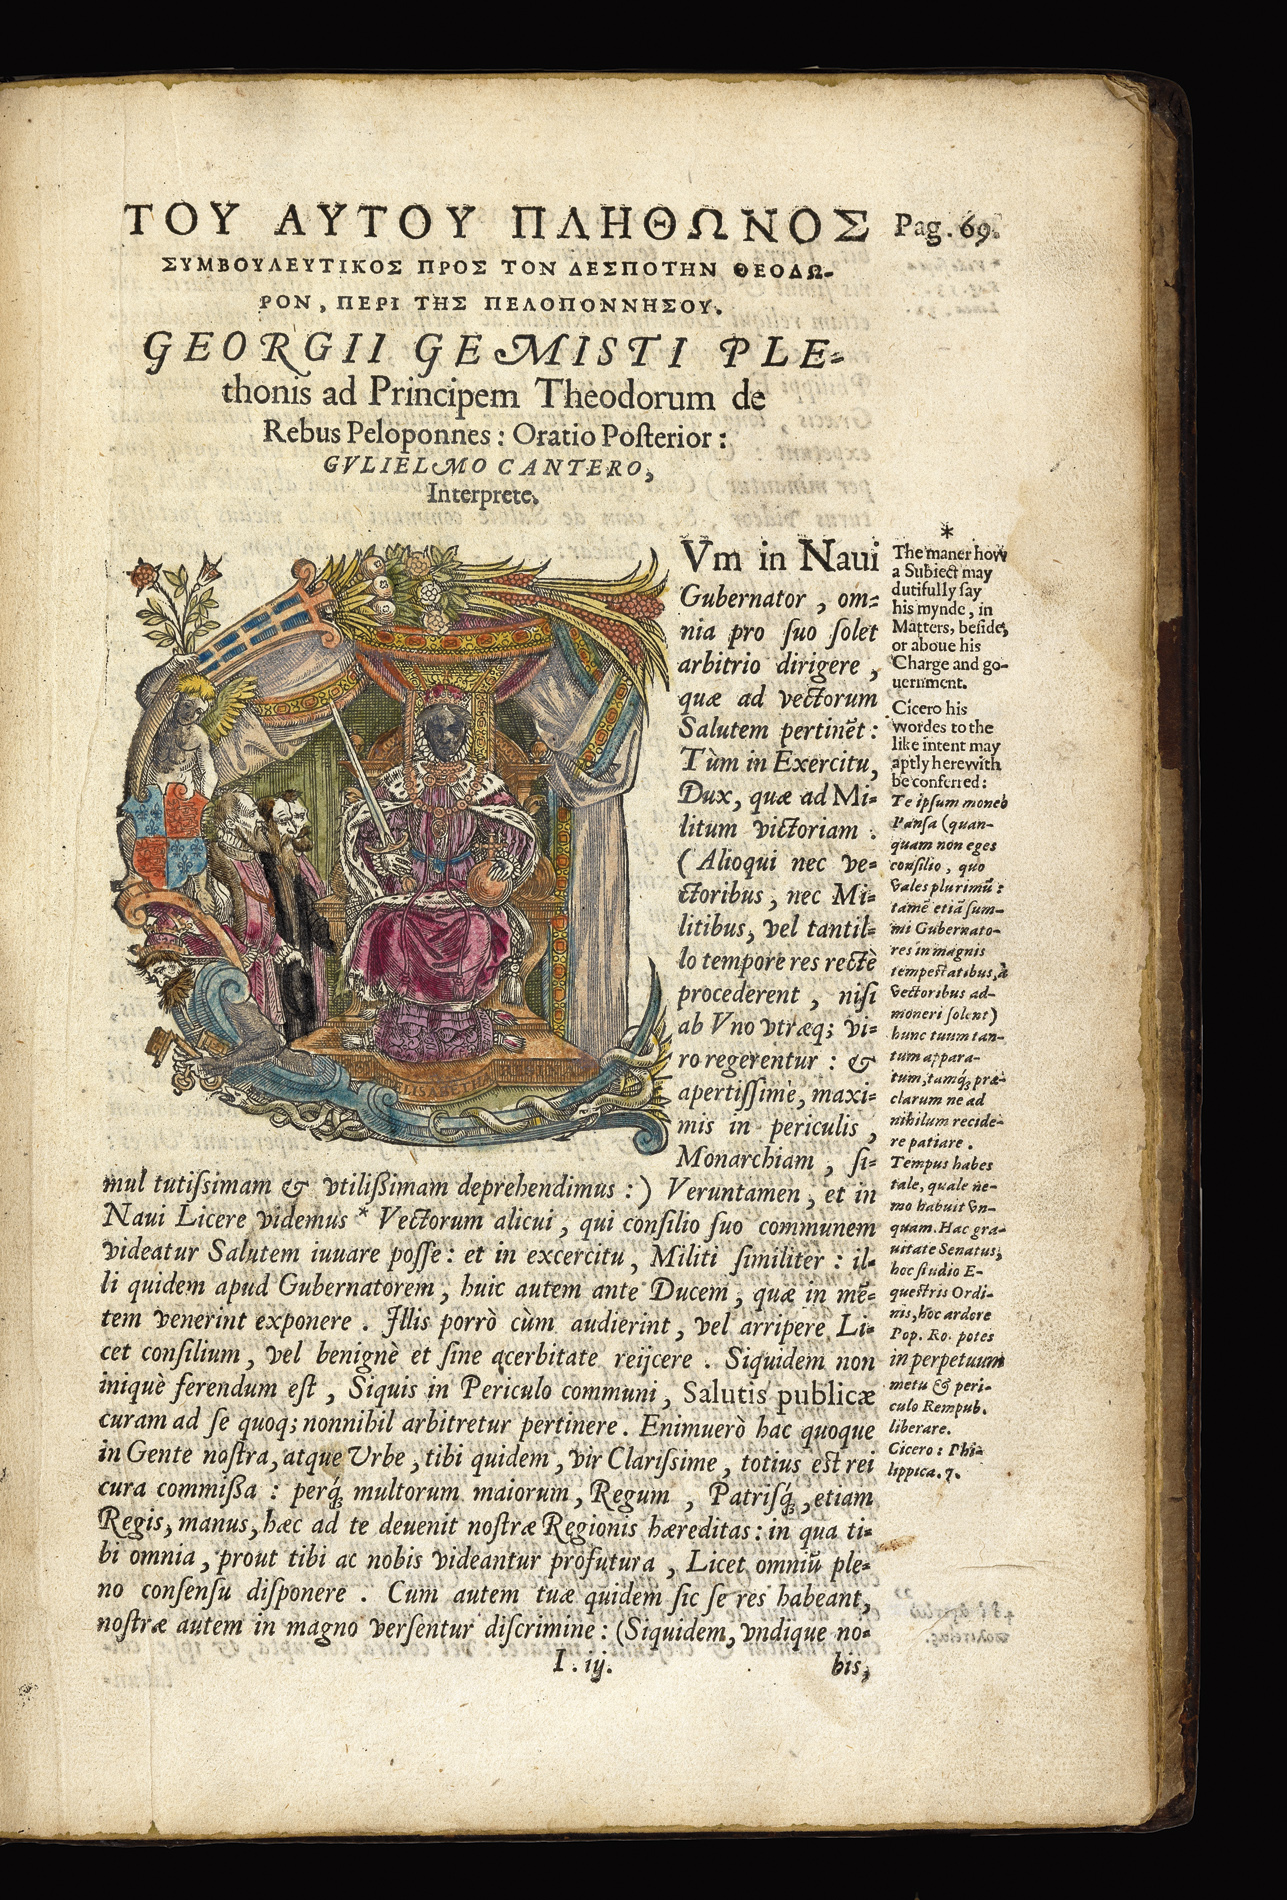 ΤΟΥ ΑΥΤΟΥ ΠΛΗΘΩΝΟΣ
Pag. 69.
ΣΥΜΒΟΥΛΕΥΤΙΚΟΣ ΠΡΟΣ ΤΟΝ ΔΕΣΠΟΤΗΝ ΘΕΟΔΩ-
ΡΟΝ, ΠΕΡΙ ΤΗΣ ΠΕΛΟΠΟΝΝΗΣΟΥ.
GEORGII GEMISTI PLE=
thonis ad Principem Theodorum de
Rebus Peloponnes: Oratio Poſterior:
GVLIELMO CANTERO,
Interprete.
Vm in Naui
Gubernator, om=
nia pro ſuo ſolet
arbitrio dirigere,
quæ ad vectorum
Salutem pertinēt:
Tùm in Exercitu,
Dux, quæ ad Mi=
litum victoriam.
(Alioqui nec ve=
ctoribus, nec Mi=
litibus, vel tantil=
lo tempore res rectè
procederent, niſi
ab Vno vtræq; vi=
ro regerentur: &
apertiſſimè, maxi=
mis in periculis,
Monarchiam, ſi=
mul tutiſsimam & vtilißimam deprehendimus:) Veruntamen, et in
Naui Licere videmus * Vectorum alicui, qui conſilio ſuo communem
videatur Salutem iuuare poſſe: et in excercitu, Militi ſimiliter: il=
li quidem apud Gubernatorem, huic autem ante Ducem, quæ in mē=
tem venerint exponere. Illis porrò cùm audierint, vel arripere Li=
cet conſilium, vel benignè et ſine acerbitate reijcere. Siquidem non
iniquè ferendum eſt, Siquis in Periculo communi, Salutis publicæ
curam ad ſe quoq; nonnihil arbitretur pertinere. Enimuerò hac quoque
in Gente noſtra, atque Vrbe, tibi quidem, vir Clariſsime, totius eſt rei
cura commißa: perq́ꝫ multorum maiorum, Regum, Patriſq́ꝫ, etiam
Regis, manus, hæc ad te deuenit noſtræ Regionis hæreditas: in qua ti=
bi omnia, prout tibi ac nobis videantur profutura, Licet omniū ple=
no conſenſu diſponere. Cum autem tuæ quidem ſic ſe res habeant,
noſtræ autem in magno verſentur diſcrimine: (Siquidem, vndique no=
I. iij.
bis,
*
The maner how
a Subiect may
dutifully ſay
his mynde, in
Matters, beſide,
or aboue his
Charge and go-
uernment.
Cicero his
wordes to the
like intent may
aptly herewith
be conferred:
Te ipſum moneo
Panſa (quan-
quam non eges
conſilio, quo
vales plurimū:
tamē etiā ſum-
mi Gubernato-
res in magnis
tempeſtatibus, à
Vectoribus ad-
moneri ſolent)
hunc tuum tan-
tum appara-
tum, tamq́ꝫ præ-
clarum ne ad
nihilum recide-
re patiare.
Tempus habes
tale, quale ne-
mo habuit vn-
quam. Hac gra-
uitate Senatus,
hoc ſtudio E-
queſtris Ordi-
nis, hoc ardore
Pop. Ro. potes
in perpetuum
metu & peri-
culo Rempub.
liberare.
Cicero: Phi-
lippica. 7.
ELISABETHA